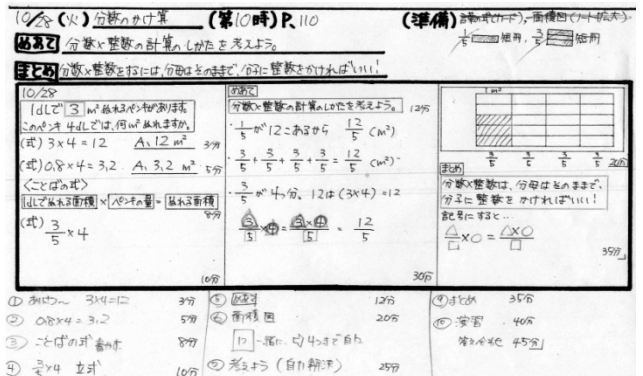 10/28(火)分数のかけ算 (第10時)P.110 (準備)
1/5 短冊, 3/5 短冊
めあて 分数×整数の計算のしかたを考えよう。
まとめ 分数×整数をするには、分母はそのままで、分子に整数をかければいい!
10/28
1dLで 3 m²ぬれるペンキがあります。
このペンキ4dLでは、何m²ぬれますか。
(式) 3×4=12 A、12m² 3分
(式) 0.8×4=3.2 A、3.2m² 5分
〈ことばの式〉
1dLでぬれる面積 × ペンキの量 = ぬれる面積
8分
(式) 3/5×4
10分
めあて
分数×整数の計算のしかたを考えよう。 12分
・1/5が12こあるから 12/5 (m²)
・3/5+3/5+3/5+3/5=12/5 (m²)
・3/5が4つ分。12は(3×4)=12
3/5×4=3×4/5=12/5
30分
1m²
3/5 3/5 3/5 3/5 20分
まとめ
分数×整数は、分母はそのままで、
分子に整数をかければいい!
記号にすると…
△/□×○=△×○/□
35分
① 3×4=12 3分
② 0.8×4=3.2 5分
③ ことばの式 8分
④ 3/5×4 立式 10分
⑤ めあて 12分
⑥ 面積図 20分
⑦ 考えよう(自力解決) 25分
⑨ まとめ 35分
⑩ 演習 40分
45分